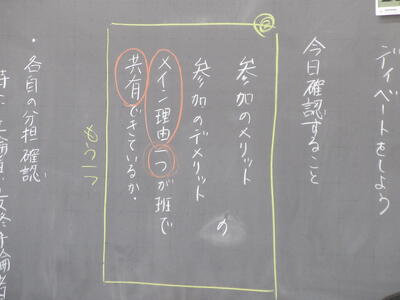 ディベートをしよう
今日確認すること
参加のメリット
の
参加のデメリット
メイン理由一つが班で
共有できているか。
もう一つ
・各自の分担確認